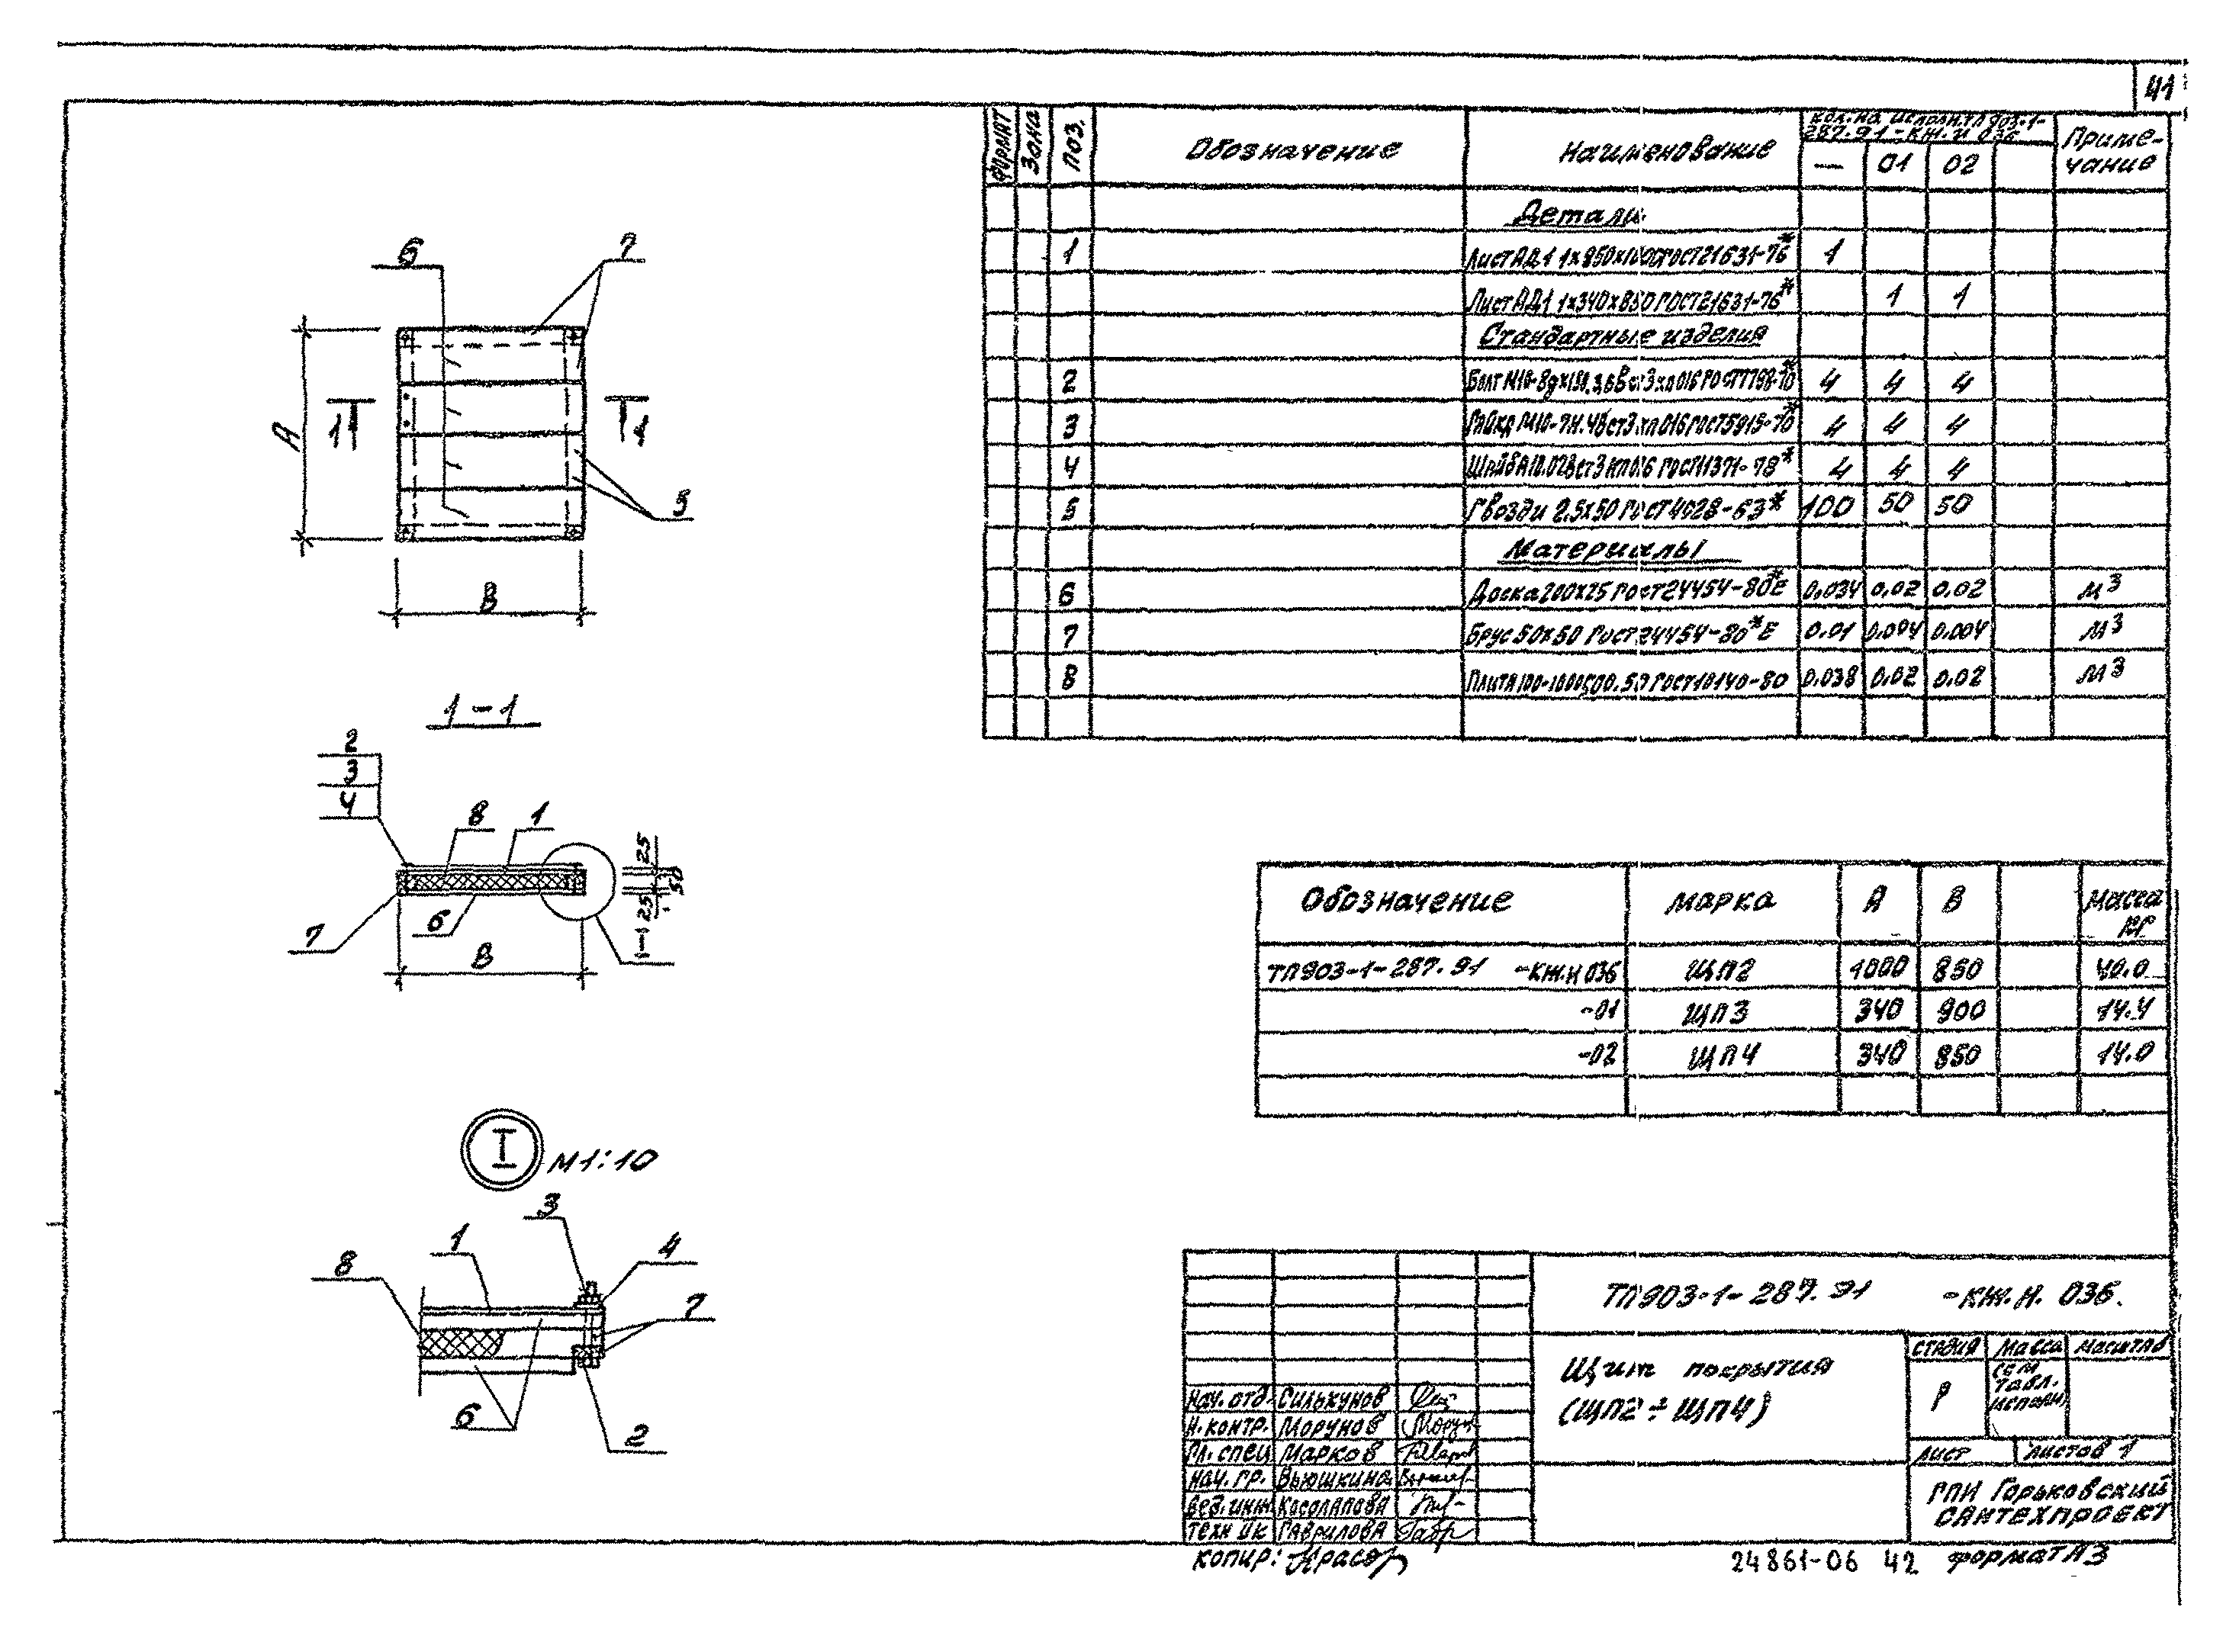 41
Формат Зона Поз. Обозначение Наименование Кол. на исполн. ТП 903-1-287.91-КЖ.И 036 Приме-чание
— 01 02
Детали
1 Лист АД1 1х850х1000 ГОСТ 21631-76* 1
Лист АД1 1х340х850 ГОСТ 21631-76* 1 1
Стандартные изделия
2 Болт М10-8gх130. ГОСТ 7798-70* 4 4 4
3 Гайка М10-7Н. ГОСТ 5915-70* 4 4 4
4 Шайба ГОСТ 11371-78* 4 4 4
5 Гвозди 2,5х50 ГОСТ 4028-63* 100 50 50
Материалы
6 Доска 200х25 ГОСТ 24454-80*Е 0,034 0,02 0,02 м3
7 Брус 50х50 ГОСТ 24454-80*Е 0.01 0.004 0.004 м3
8 ГОСТ 10140-80 0.038 0,02 0,02 м3
6
7
А
1
1
5
В
1-1
2
3
4
8
1
25
50
25
7
6
В
I
I М1:10
3
1
4
8
7
6
2
Обозначение марка А В Масса кг
ТП903-1-287.91 -КЖ.И 036 ЩП2 1000 850 40.0
-01 ЩП3 340 900 14.4
-02 ЩП4 340 850 14.0
ТП903-1-287.91 -КЖ.И. 036.
Щит покрытия
(ЩП2÷ЩП4)
стадия Масса Масштаб
Р См. табл. исполн.
Лист Листов 1
ГПИ Горьковский
Сантехпроект
Нач. отд. Силькунов
Н. контр. Морунов
Гл. спец Марков
Нач. гр. Вьюшкина
Вед. инж Косолапова
Техник Гаврилова
Копир:
24861-06 42 Формат А3